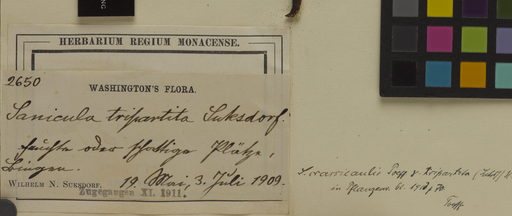 HERBARIUM REGIUM MONACENSE.
2650
WASHINGTON'S FLORA.
Sanicula tripartita Suksdorf.
feuchte oder schattige Plätze,
Bingen.
WILHELM N. SUKSDORF. 19. Mai, 3. Juli 1909.
Zugegangen XI. 1911.
S. crassicaulis Poepp v. tripartita (Suksd.)
in Pflanzenr. 61 1913 p.
Wolff